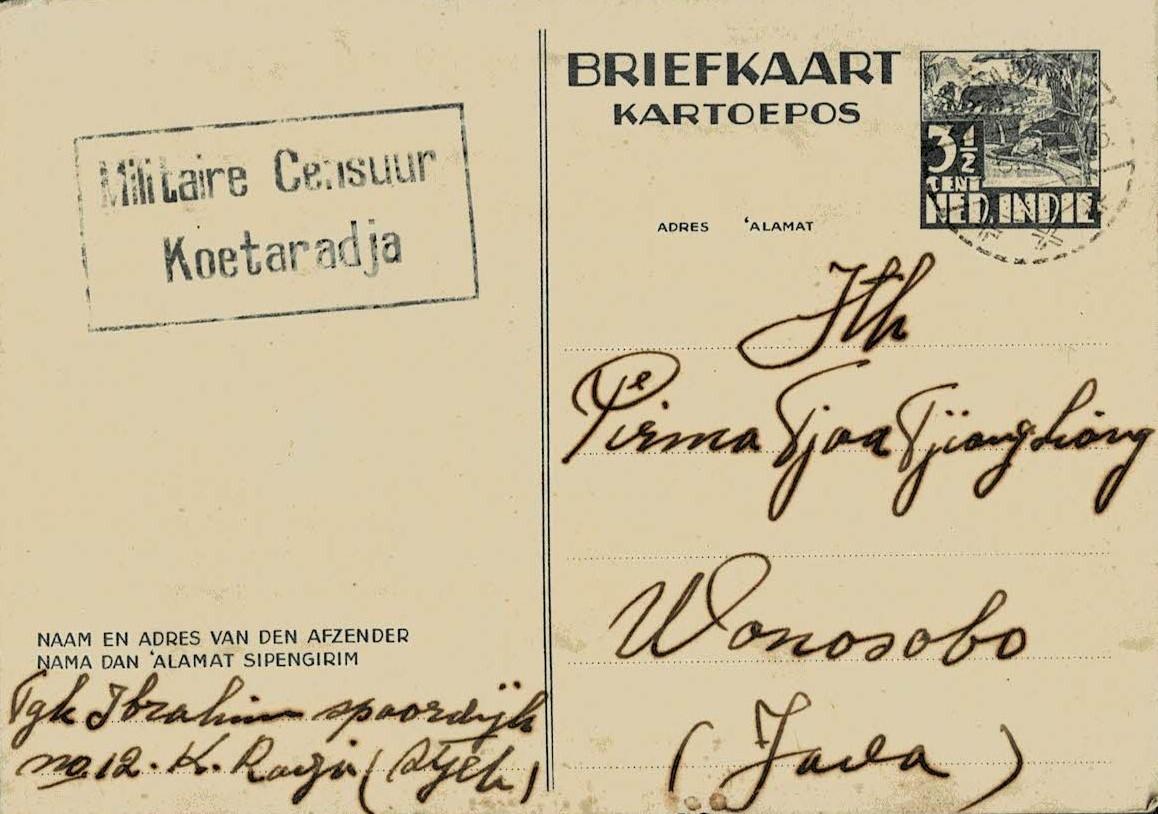 Militaire Censuur
Koetaradja
NAAM EN ADRES VAN DEN AFZENDER
NAMA DAN 'ALAMAT SIPENGIRIM
Tgk Ibrahim spoordijk
no. 12. K. Radja (Atjeh)
BRIEFKAART
KARTOEPOS
3½
CENT
NED. INDIE
ADRES 'ALAMAT
Jth
Firma Tjoa Tjiang Liong
Wonosobo
(Java)